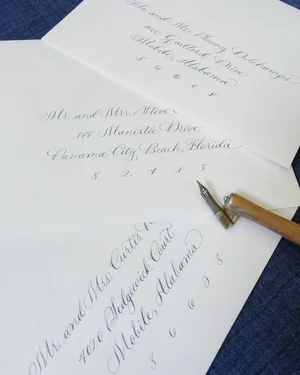 Mr. and Mrs. Danny Delchamps
Guilford Drive
Mobile, Alabama
3 6 6 0 8
Mr. and Mrs. Steve
Manistee Drive
Panama City Beach, Florida
3 2 4 1 3
Mr. and Mrs. Curtis
4020 Sedgewick Court
Mobile, Alabama
3 6 6 9 3